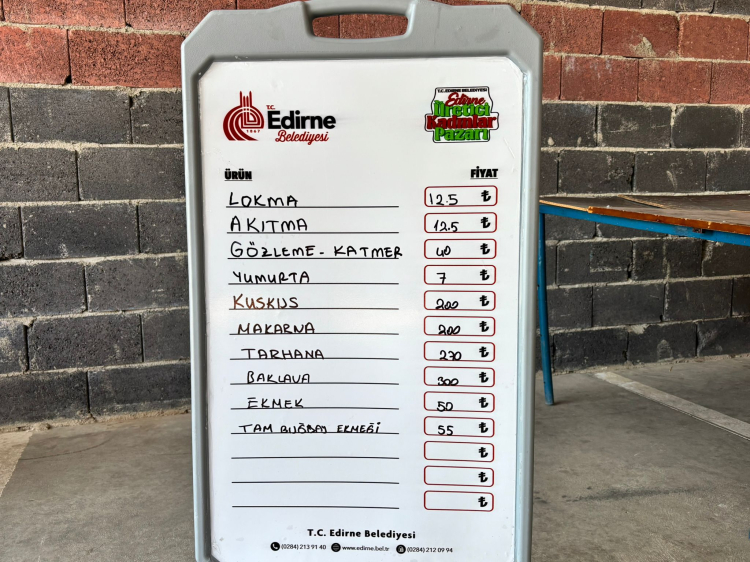 T.C.
Edirne
Belediyesi
1867
T.C. EDİRNE BELEDİYESİ
Edirne
Üretici
Kadınlar
Pazarı
ÜRÜN FİYAT
LOKMA 12.5 ₺
AKITMA 12.5 ₺
GÖZLEME - KATMER 40 ₺
YUMURTA 7 ₺
KUSKUS 200 ₺
MAKARNA 200 ₺
TARHANA 270 ₺
BAKLAVA 300 ₺
EKMEK 50 ₺
TAM BUĞDAY EKMEĞİ 55 ₺
₺
₺
₺
T.C. Edirne Belediyesi
(0284) 213 91 40 www.edirne.bel.tr (0284) 212 09 94